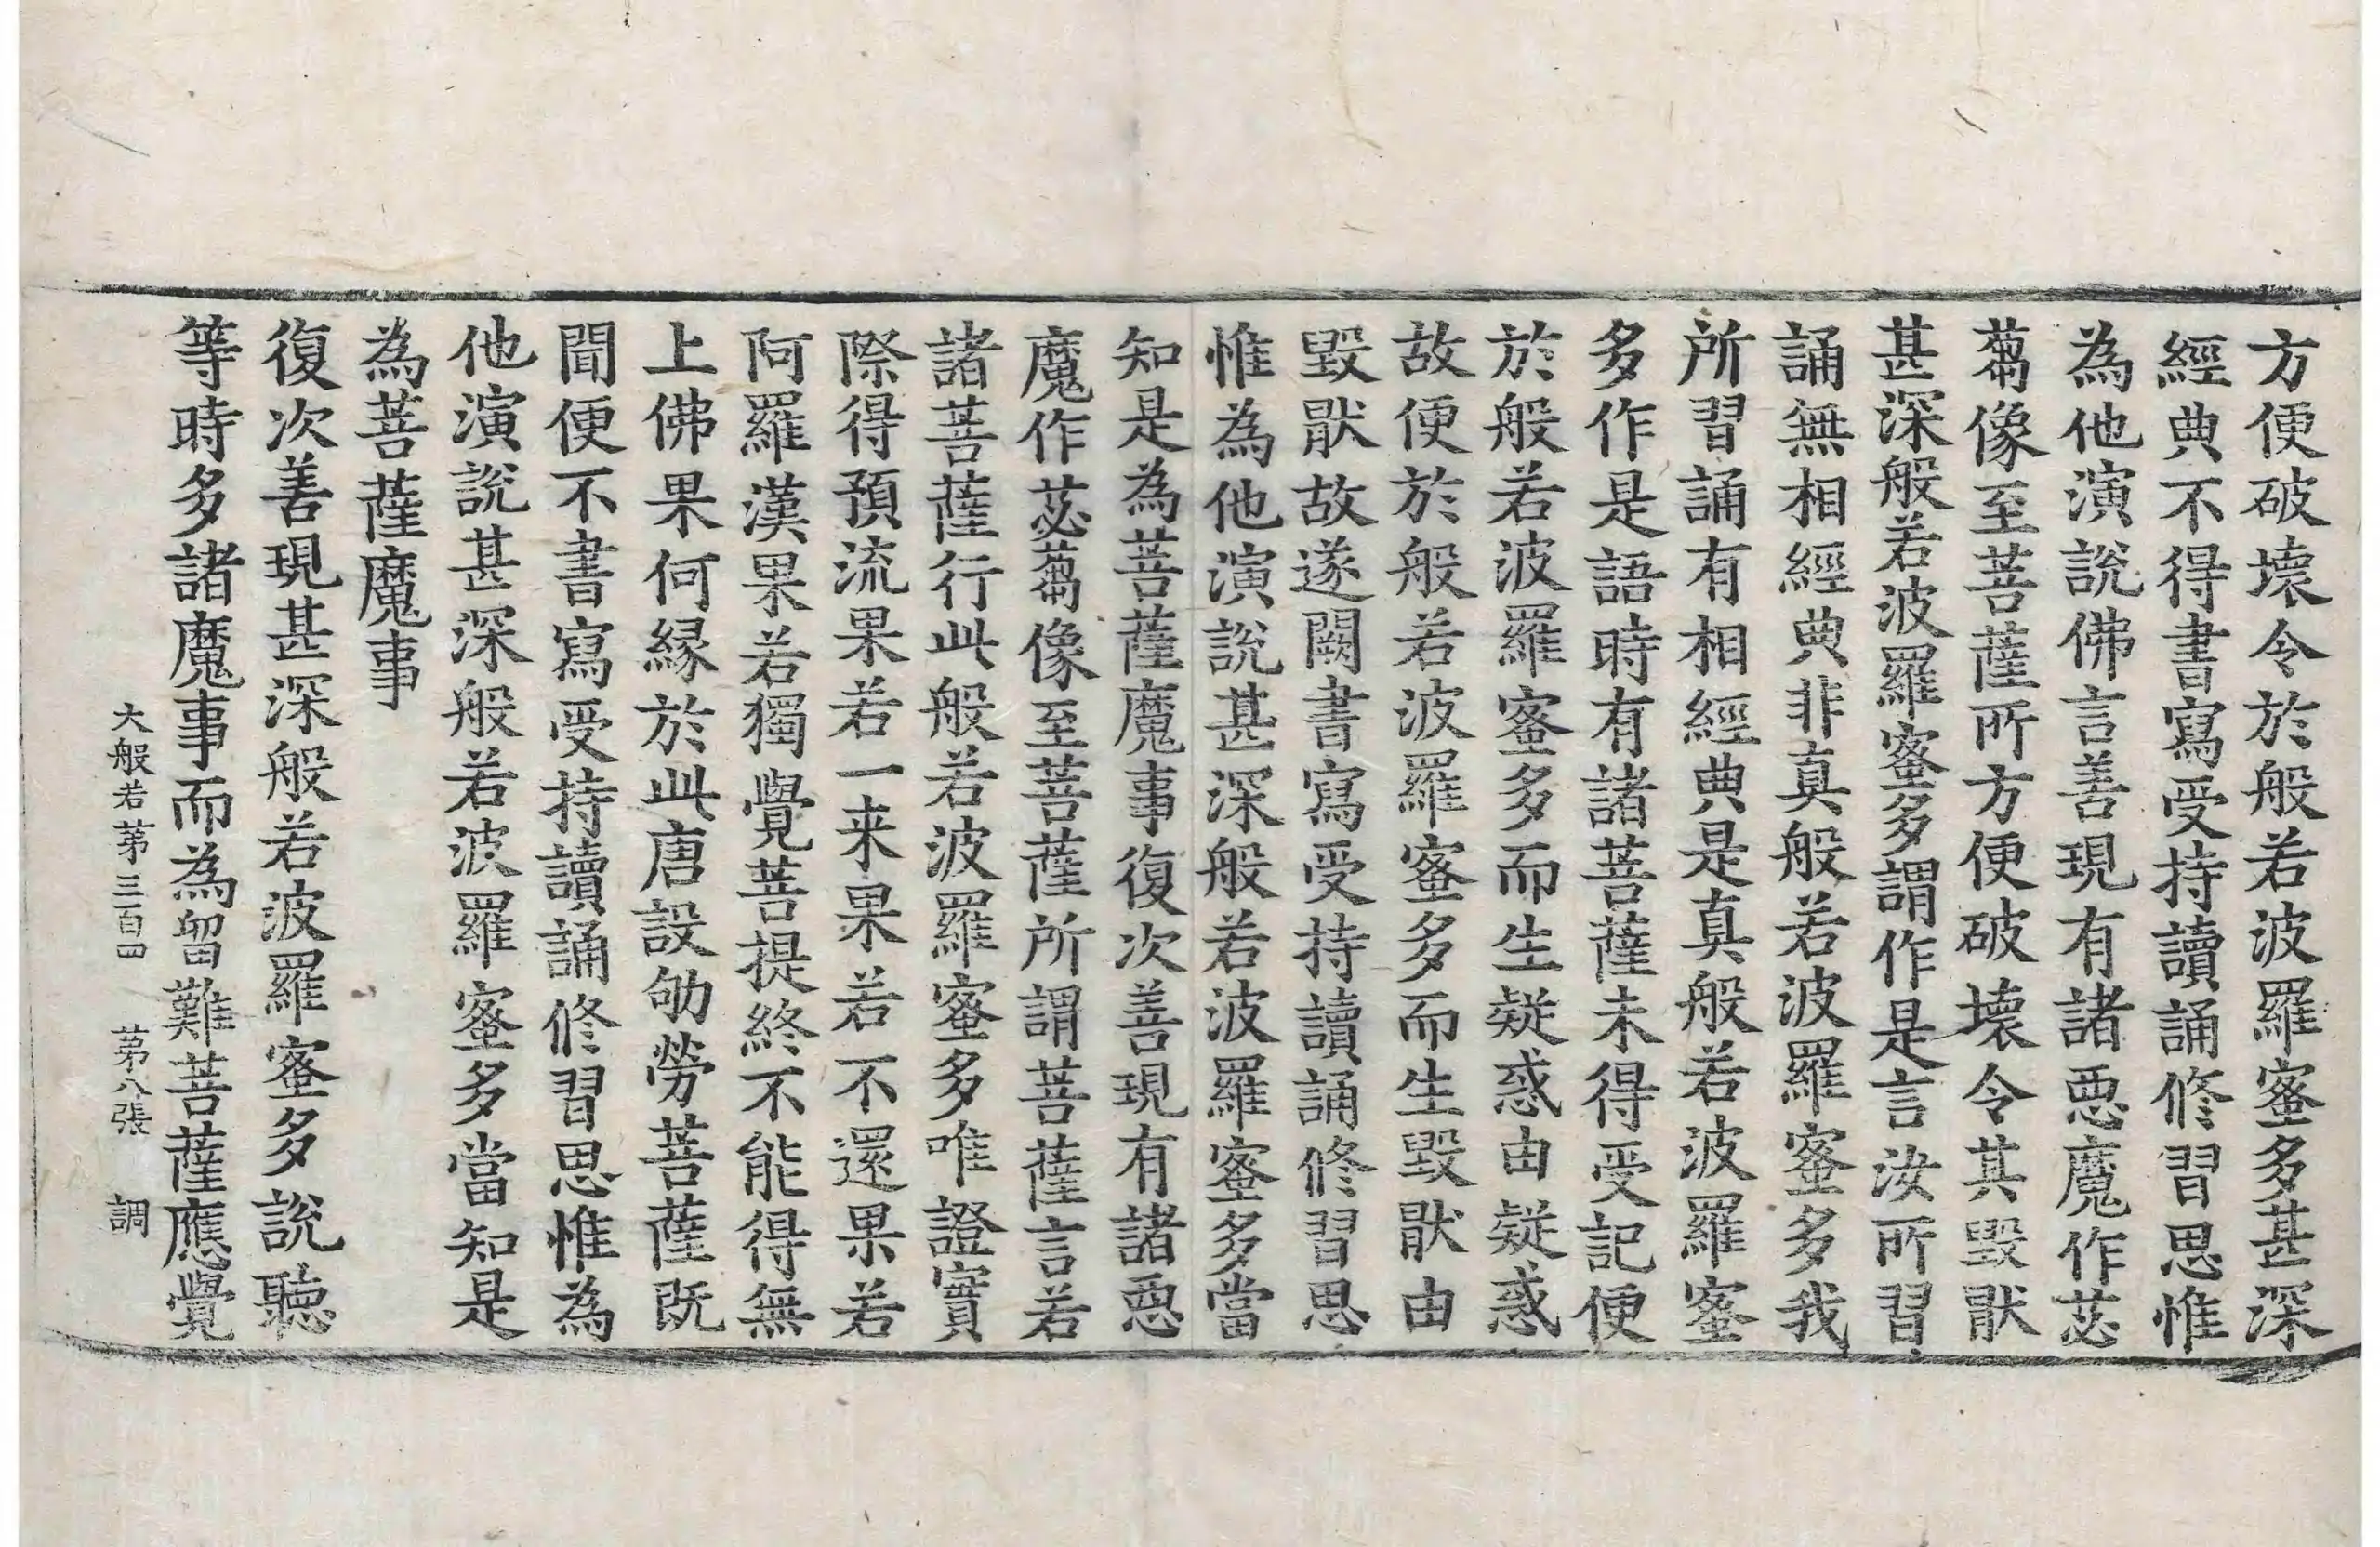 方便破壞令於般若波羅蜜多甚深
經典不得書寫受持讀誦修習思惟
為他演說佛言善現有諸惡魔作苾
蒭像至菩薩所方便破壞令其毀猒
甚深般若波羅蜜多謂作是言汝所習
誦無相經典非真般若波羅蜜多我
所習誦有相經典是真般若波羅蜜
多作是語時有諸菩薩未得受記便
於般若波羅蜜多而生疑惑由疑惑
故便於般若波羅蜜多而生毀猒由
毀猒故遂闕書寫受持讀誦修習思
惟為他演說甚深般若波羅蜜多當
知是為菩薩魔事復次善現有諸惡
魔作苾蒭像至菩薩所謂菩薩言若
諸菩薩行此般若波羅蜜多唯證實
際得預流果若一来果若不還果若
阿羅漢果若獨覺菩提終不能得無
上佛果何緣於此唐設劬勞菩薩既
聞便不書寫受持讀誦修習思惟為
他演說甚深般若波羅蜜多當知是
為菩薩魔事
復次善現甚深般若波羅蜜多說聽
等時多諸魔事而為留難菩薩應覺
大般若苐三百四 苐八張 調